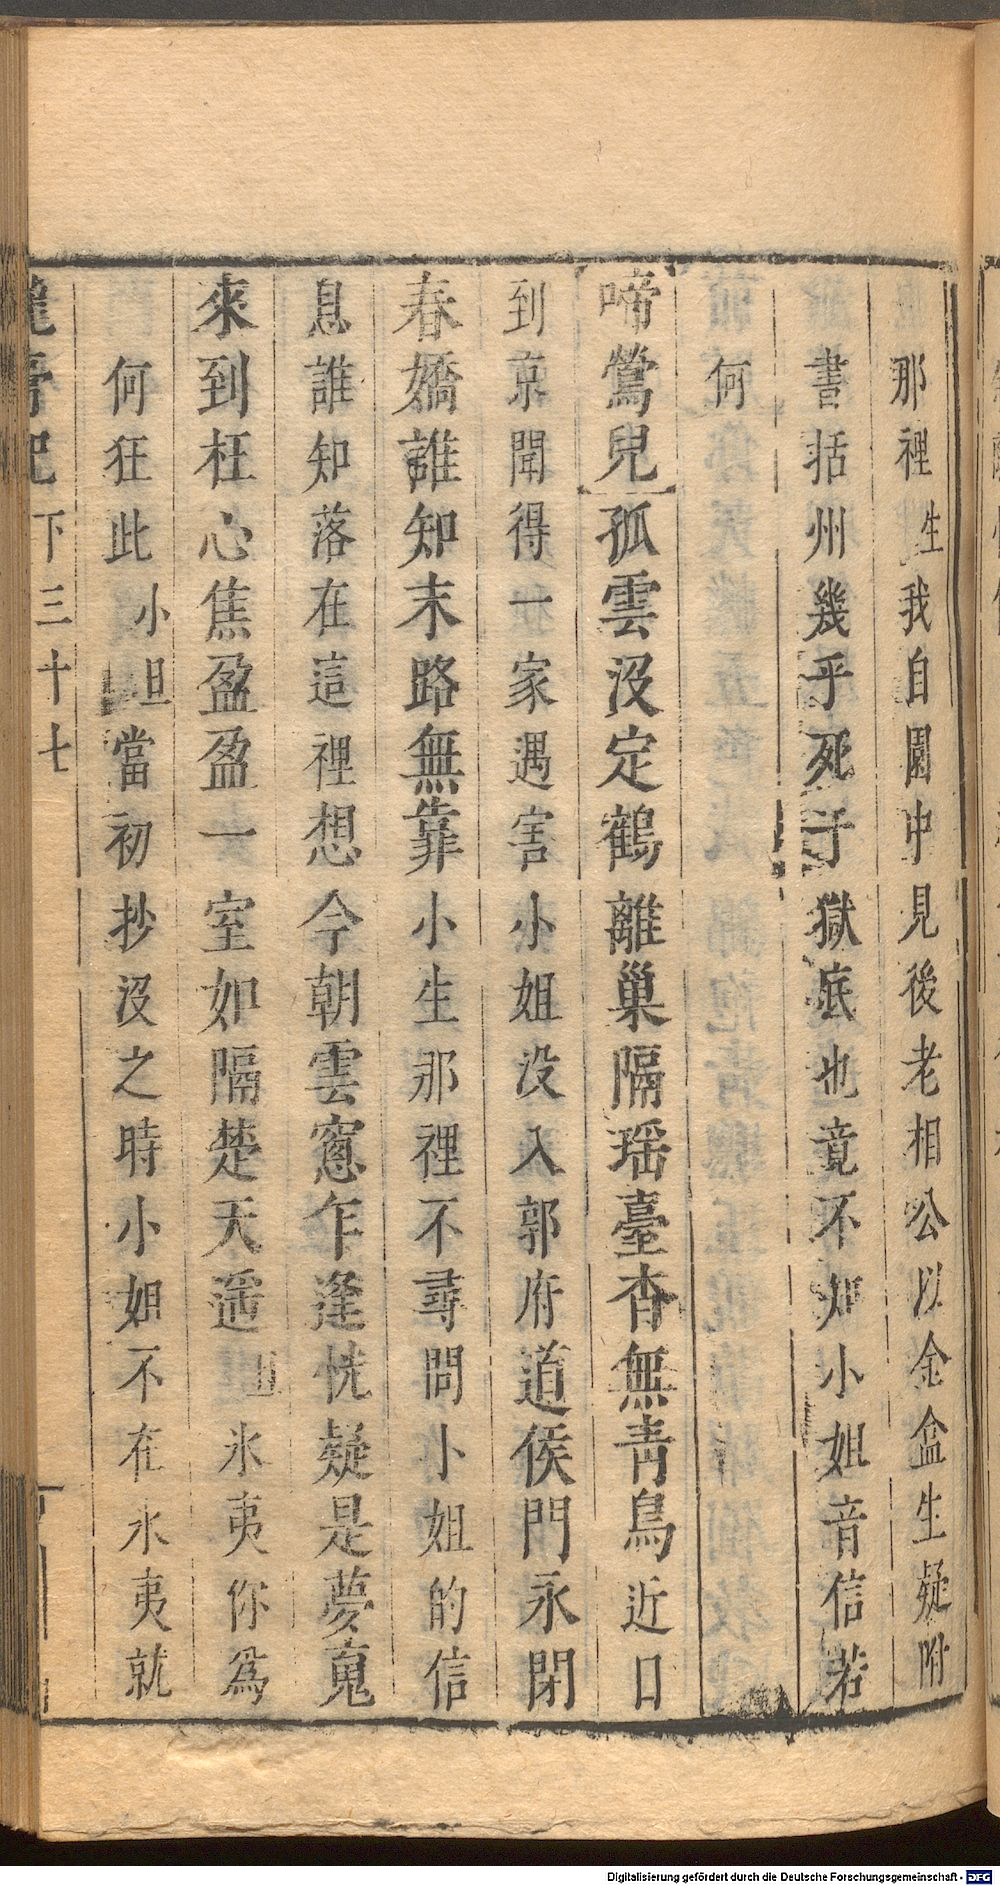 那裡生我自園中見後老相公以金盆生疑附
書括州幾乎死于獄底也竟不知小姐音信若
何
啼鶯兒孤雲沒定鶴離巢隔瑶臺杳無靑鳥近日
到京聞得一家遇害小姐没入郭府道侯門永閉
春嬌誰知末路無靠小生那裡不尋問小姐的信
息誰知落在這裡想今朝雲窻乍逢恍疑是夢䰟
來到枉心焦盈盈一室如隔楚天遥 氷夷你爲
何狂此小旦當初抄沒之時小姐不在氷夷就
龍膏記 下三十七
Digitalisierung gefördert durch die Deutsche Forschungsgemeinschaft - DFG